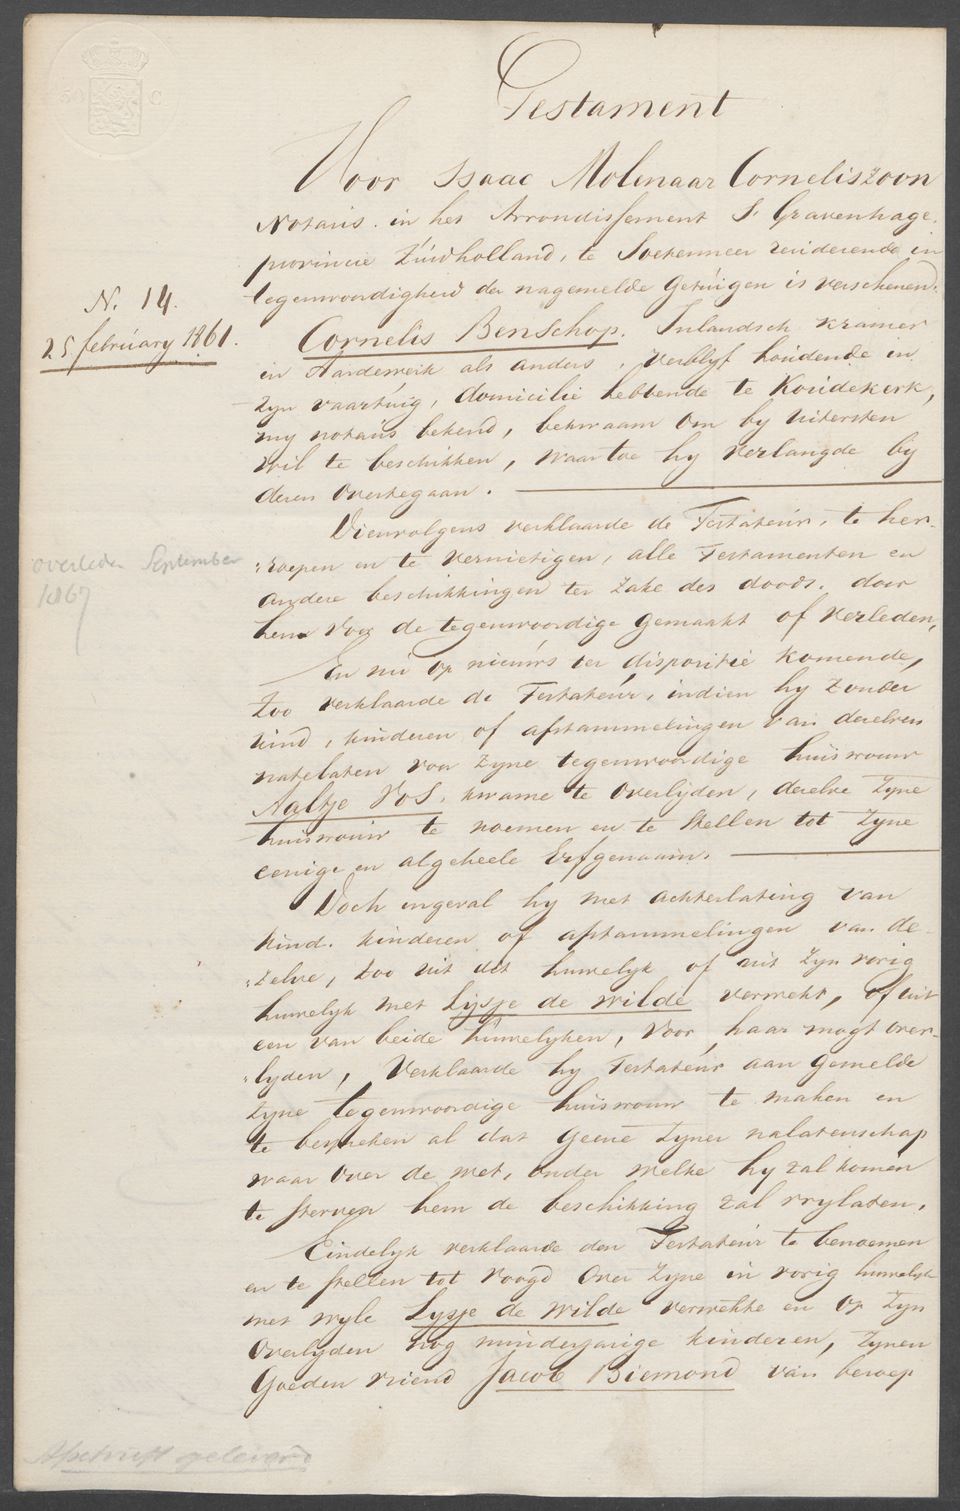 50 C.
Testament
Voor Isaac Molenaar Corneliszoon
Notaris in het Arrondissement S' Gravenhage,
provincie Zuidholland, te Soetermeer resideerende in
tegenwoordigheid der nagemelde getuigen is verschenen.
N. 14.
25 februarij 1861.
Cornelis Benschop. Inlandsch kramer
in Aardewerk als anders, verblyf houdende in
zyn vaartuig, domicilie hebbende te Koudekerk,
my notaris bekend, bekwaam om by uitersten
wil te beschikken, waartoe hy verlangde by
dezen overtegaan.
Dienvolgens verklaarde de Testateur, te her-
:roepen en te vernietigen, alle Testamenten en
andere beschikkingen ter zake des doods. door
hem voor de tegenwoordige gemaakt of verleden,
overleden September
1867
En nu op nieuws ter dispositie komende,
zoo verklaarde de Testateur, indien hy zonder
kind, kinderen of afstammelingen van dezelven
natelaten voor zyne tegenwoordige huisvrouw
Aaltje Vos, kwame te overlyden, dezelve zyne
huisvrouw te noemen en te stellen tot zyne
eenige en algeheele Erfgenaam.
Doch ingeval hy met achterlating van
kind, kinderen of afstammelingen van de-
:zelve, zoo uit dit huwelyk of uit zyn vorig
huwelyk met Lijsje de Wilde verwekt, of uit
een van beide huwelyken, voor haar mogt over-
:lyden, verklaarde hy Testateur aan gemelde
zyne tegenwoordige huisvrouw te maken en
te bespreken al dat geene zyner nalatenschap
waar over de wet, onder welke hy zal komen
te sterven hem de beschikking zal vrylaten.
Eindelyk verklaarde den Testateur te benoemen
en te stellen tot voogd over zyne in vorig huwelyk
met wyle Lysje de Wilde verwekte en op zyn
overlyden nog minderjarige kinderen, zynen
goeden vriend Jacob Biemond van beroep
Afschrift geleverd